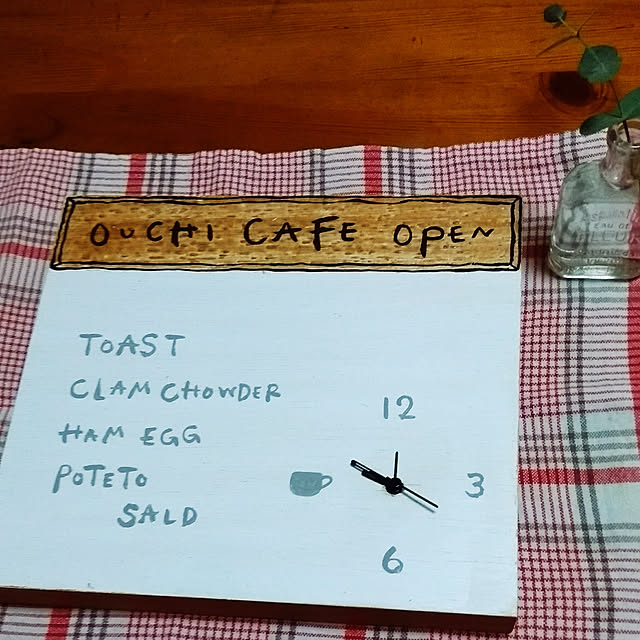 OUCHI CAFE OPEN
TOAST
CLAM CHOWDER
HAM EGG
POTETO
SALD
12
3
6